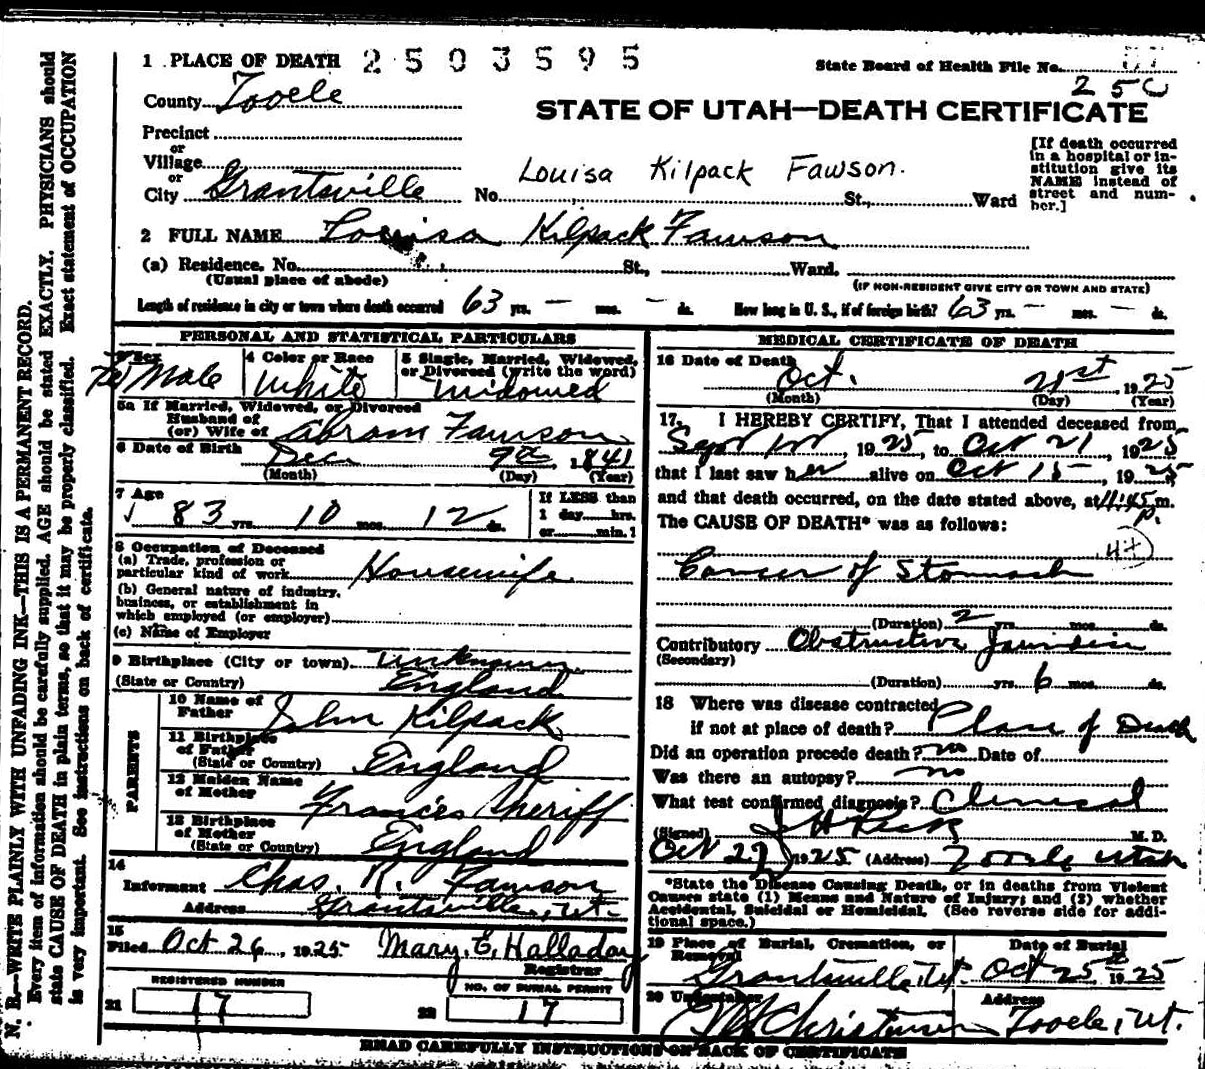 1 PLACE OF DEATH 2503595
State Board of Health File No.
250
County Tooele
STATE OF UTAH—DEATH CERTIFICATE
Precinct
or
Village
or
City Grantsville
Louisa Kilpack Fawson.
No. St., Ward
[If death occurred
in a hospital or in-
stitution give its
NAME instead of
street and num-
ber.]
2 FULL NAME Louisa Kilpack Fawson
(a) Residence, No. St., Ward,
(Usual place of abode)
(IF NON-RESIDENT GIVE CITY OR TOWN AND STATE)
Length of residence in city or town where death occurred 63 yrs. — mos. — ds. How long in U. S., if of foreign birth? 63 yrs. — mos. — ds.
PERSONAL AND STATISTICAL PARTICULARS
3 Sex
Fe Male
4 Color or Race
White
5 Single, Married, Widowed,
or Divorced (write the word)
Widowed
5a If Married, Widowed, or Divorced
Husband of
(or) Wife of Abram Fawson
6 Date of Birth Dec 9th, 1841
(Month) (Day) (Year)
7 Age
83 yrs. 10 mos. 12 ds.
If LESS than
1 day....hrs.
or....min.?
8 Occupation of Deceased
(a) Trade, profession or
particular kind of work Housewife
(b) General nature of industry,
business, or establishment in
which employed (or employer)
(c) Name of Employer
9 Birthplace (City or town) Unknown
(State or Country) England
PARENTS
10 Name of
Father John Kilpack
11 Birthplace
of Father
(State or Country) England
12 Maiden Name
of Mother Frances Sheriff
13 Birthplace
of Mother
(State or Country) England
14
Informant Chas. R. Fawson
Address Grantsville, Ut.
15
Filed Oct 26, 1925 Mary. E. Halladay
Registrar
REGISTERED NUMBER
21 17
NO. OF BURIAL PERMIT
22 17
MEDICAL CERTIFICATE OF DEATH
16 Date of Death
Oct. 21st 1925
(Month) (Day) (Year)
17. I HEREBY CERTIFY, That I attended deceased from
Sept 1st, 1925, to Oct 21, 1925
that I last saw her alive on Oct 15, 1925
and that death occurred, on the date stated above, at 11:45 m.
P.
The CAUSE OF DEATH* was as follows:
44
Cancer of Stomach
(Duration) 2 yrs. mos. ds.
Contributory Obstructive Jaundice
(Secondary)
(Duration) yrs. 6 mos. ds.
18 Where was disease contracted
if not at place of death? Place of Death
Did an operation precede death? no Date of
Was there an autopsy? no
What test confirmed diagnosis? Clinical
(Signed) J H Peck M. D.
Oct 27, 1925 (Address) Tooele Utah
*State the Disease Causing Death, or in deaths from Violent
Causes state (1) Means and Nature of Injury; and (2) whether
Accidental, Suicidal or Homicidal. (See reverse side for addi-
tional space.)
19 Place of Burial, Cremation, or
Removal
Grantsville, Ut.
Date of Burial
Oct 25th 1925
20 Undertaker
Christensen
Address
Tooele, Ut.
READ CAREFULLY INSTRUCTIONS ON BACK OF CERTIFICATE
N. B.—WRITE PLAINLY WITH UNFADING INK—THIS IS A PERMANENT RECORD.
Every item of information should be carefully supplied. AGE should be stated EXACTLY. PHYSICIANS should
state CAUSE OF DEATH in plain terms, so that it may be properly classified. Exact statement of OCCUPATION
is very important. See instructions on back of certificate.